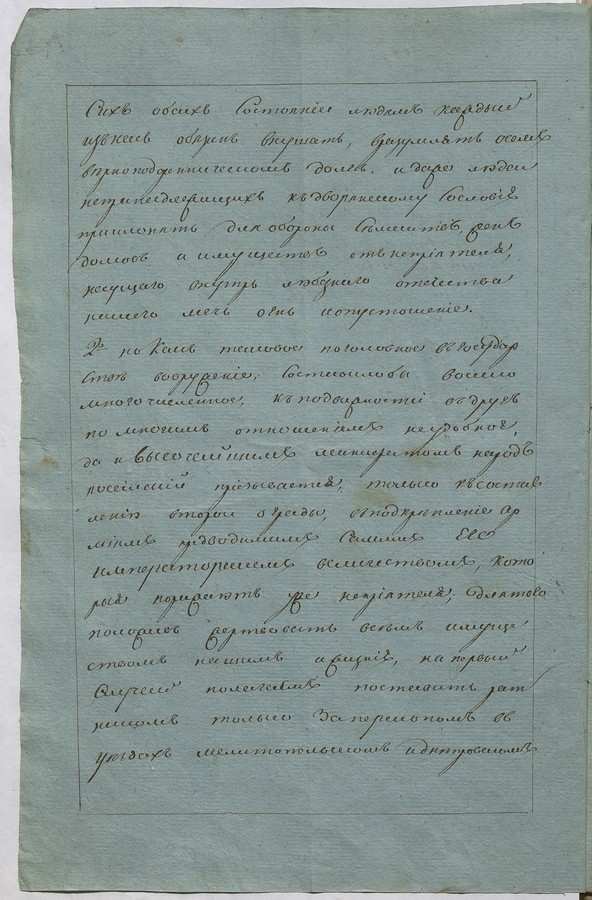 Сихъ обоихъ Состоянiи людямъ каждый
изъ насъ обязанъ внушать, вразумлять о семъ
вѣрноподданническомъ долгѣ. и даже людей
непринадлежащихъ къ дворянскому Сословiю
приклонять для обороны Семействъ, женъ
домовъ и имуществъ отъ непрiятеля,
несущаго внутрь любезнаго отечества
нашего мечь огнь и опустошенiе.
2е но Какъ таковое поголовное въ государ
ствѣ вооруженiе, Составило бы весьма
многочисленное, къ подвижности вдругъ
по многимъ отношенiямъ неудобное,
да и Высочайшимъ манифестомъ народъ
россiйскiй призывается, только къ состав
ленiю второй ограды, въ подкрѣпленiе ар
мiямъ предводимымъ Самимъ Его
Императорскимъ величествомъ, кото
рыя поражаютъ уже непрiятеля; для того
положивъ жертвовать всѣмъ имуще
ствомъ нашимъ и жизнiю, на первый
Случай полагаемъ поставить рат
никовъ только За перекопомъ въ
уѣздахъ мелитопольскомъ и днѣпровскомъ